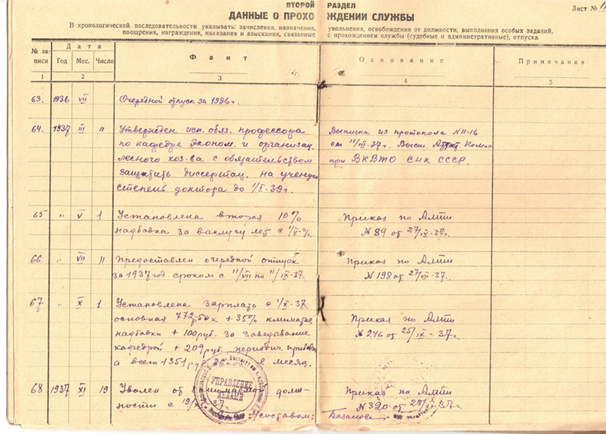 ВТОРОЙ РАЗДЕЛ
Лист №
ДАННЫЕ О ПРОХОЖДЕНИИ СЛУЖБЫ
В хронологической последовательности указывать: зачисления, назначения, увольнения, освобождения от должности, выполнения особых заданий,
поощрения, награждения, наказания и взыскания, связанные с прохождением службы (судебные и административные), отпуска
№ записи Дата Факт Основание Примечания
Год Мес. Число
1 2 3 4 5
63. 1936 VII Очередной отпуск за 1936 г.
64. 1937 III 11 Утвержден исп. обяз. профессора Выписка из протокола № 11-16
по кафедре эконом. и организац. от 11/III-37г. Высш. Аттест. Комис.
лесного хоз-ва с обязательством при ВКВТО СНК СССР.
защитить диссертац. на ученую
степень доктора до 1/I-39г.
65 " V 1 Установлена вторая 10% Приказ по Алти
надбавка за выслугу лет с 1/V-37. № 89 от
66 " VII 11 Предоставлен очередной отпуск Приказ по Алти
за 1937 год сроком с 11/VII по 11/IX-37. № 198 от
67 " X 1 Установлена зарплата с 1/X-37.
основная 772,50к + 35% климатич. Приказ по Алти
надбавки + 100 руб. за заведывание № 246 от 25/IX-37.
кафедрой + 209 руб.
а всего 1351 руб. в месяц.
68 1937 XI 19 Уволен от занимаемой долж- Приказ по Алти
ности с 19/XI-37. № 320 от